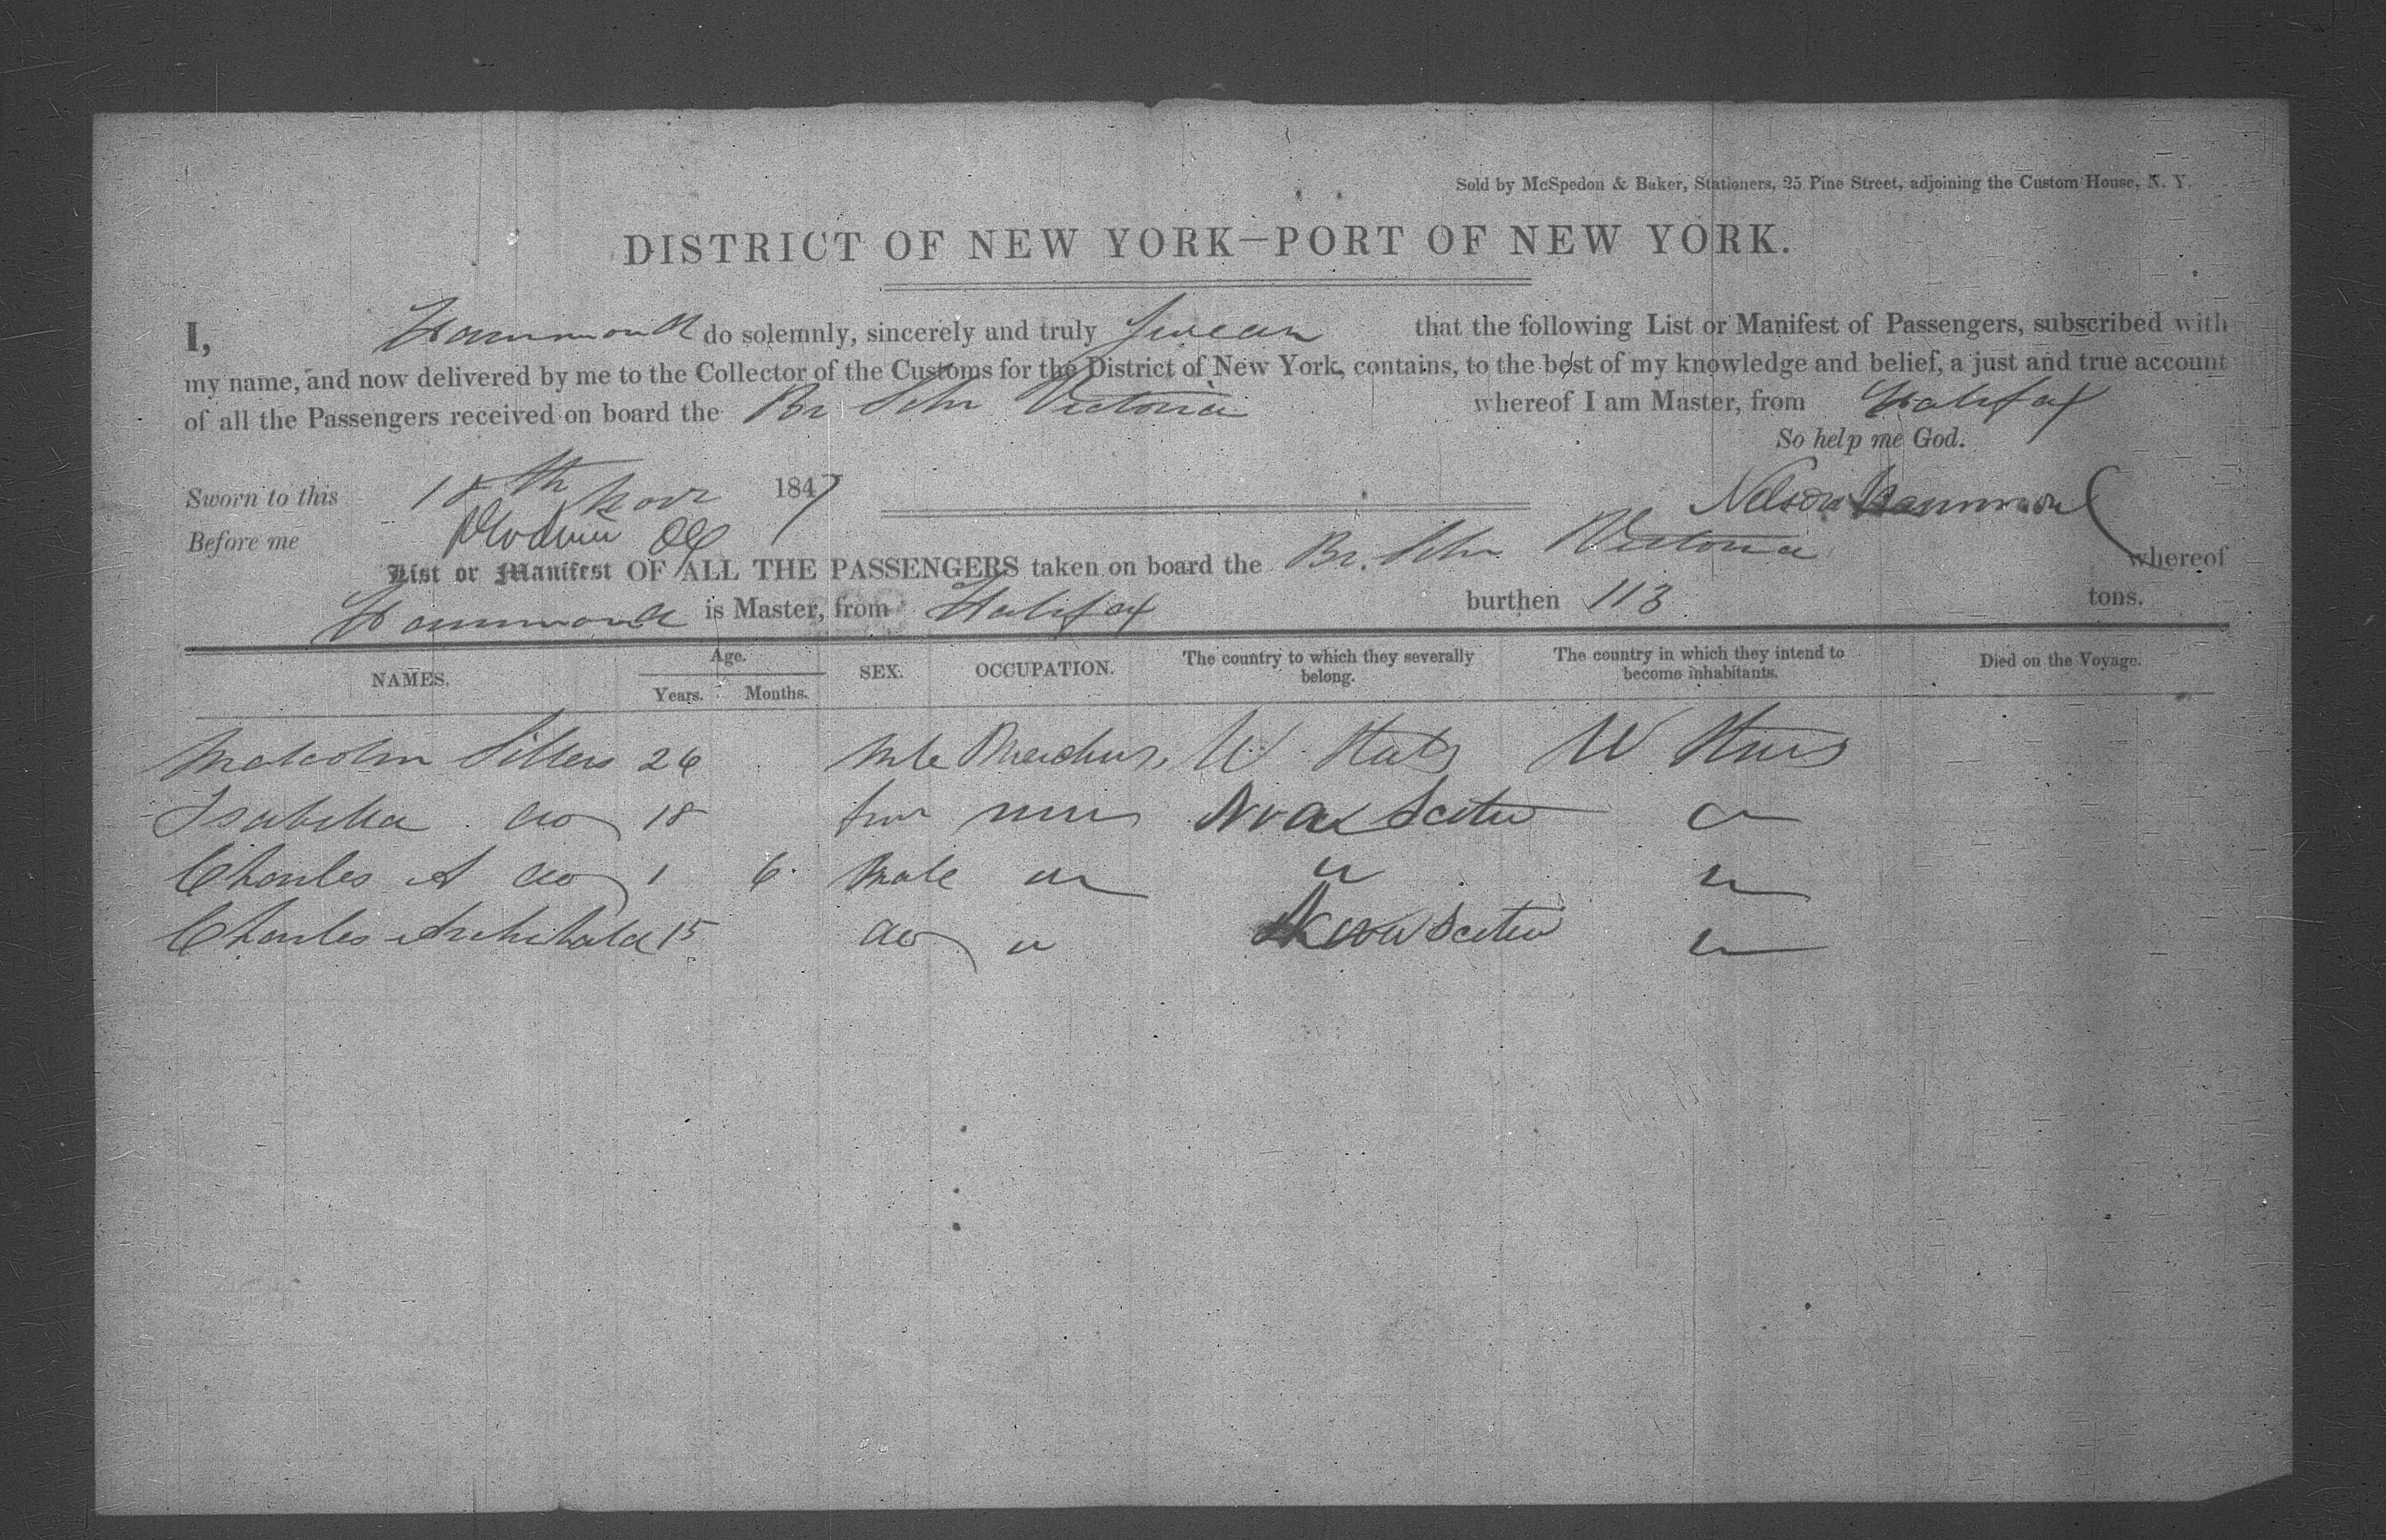 Sold by McSpedon & Baker, Stationers, 25 Pine Street, adjoining the Custom House, N. Y.
DISTRICT OF NEW YORK—PORT OF NEW YORK.
I, Hammond do solemnly, sincerely and truly Swear that the following List or Manifest of Passengers, subscribed with
my name, and now delivered by me to the Collector of the Customs for the District of New York, contains, to the best of my knowledge and belief, a just and true account
of all the Passengers received on board the Br Schr Victoria whereof I am Master, from Halifax
So help me God.
Sworn to this 18th Novr 1847 Nelson Hammond
Before me
List or Manifest OF ALL THE PASSENGERS taken on board the Br. Schr Victoria whereof
Hammond is Master, from Halifax burthen 113 tons.
NAMES. Age. Years. Months. SEX. OCCUPATION. The country to which they severally belong. The country in which they intend to become inhabitants. Died on the Voyage.
Malcolm 26 U States U States
Isabella do 18 Nova Scotia
Charles A do 1 6 Male "
Charles Archibald 15 do " Nova Scotia